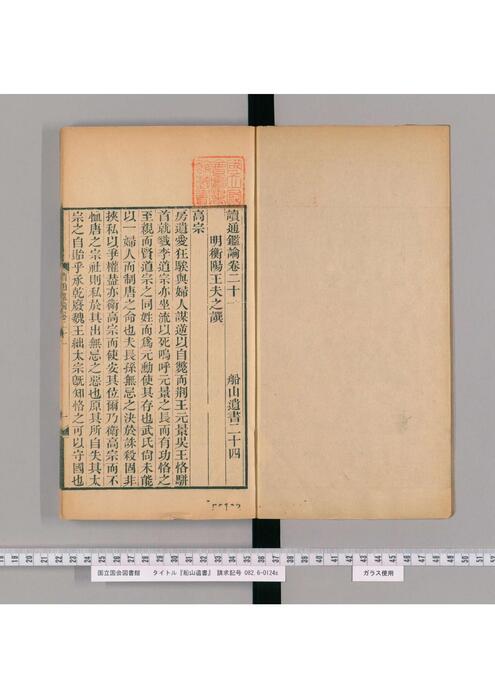 讀通鑑論卷二十一　船山遺書二十四
明衡陽王夫之譔
高宗
房遺愛狂騃與婦人謀逆以自斃而荆王元景吳王恪駢
首就戮李道宗亦坐流以死嗚呼元景之長而有功恪之
至親而賢道宗之同姓而爲元勳使其存也武氏尙未能
以一婦人而制唐之命也夫長孫無忌之決於誅殺固非
挾私以爭權葢亦衞高宗而使安其位爾乃衞高宗而不
恤唐之宗社則私於其出無忌之惡也原其所自失其太
宗之自貽乎承乾廢魏王絀太宗旣知恪之可以守國也
国立国会図書館　タイトル『船山遺書』　請求記号 082.6-O124s
ガラス使用
15 16 17 18 19 20 21 22 23 24 25 26 27 28 29 30 31 32 33 34 35 36 37 38 39 40 41 42 43 44 45 46 47 48 49 50 51 52 53